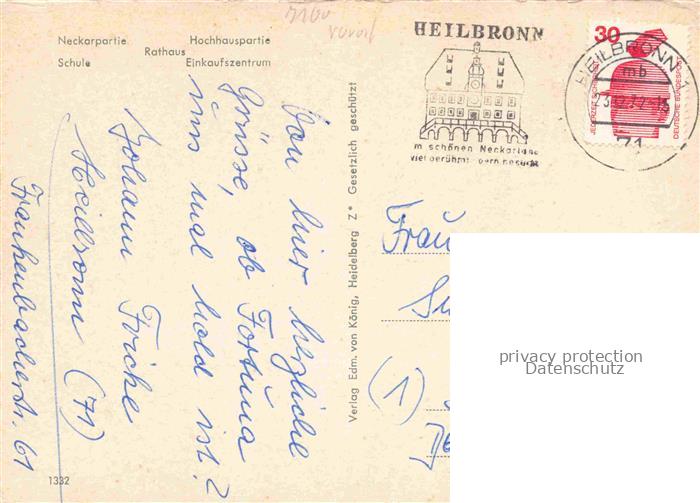 7100
Neckarpartie Hochhauspartie
Rathaus
Schule Einkaufszentrum
HEILBRONN
m schönen Neckarland
viel berühmt - gern besucht
30
JEDERZEIT SICHERHEIT
DEUTSCHE BUNDESPOST
HEILBRONN
mb
71
Von hier herzliche
Grüsse, ob Fortuna
uns mal hold ist?
Johann Fricke
Heilbronn (71)
Frankenbacherstr. 61
Verlag Edm. von König, Heidelberg Z* Gesetzlich geschützt
Frau
(1)
1332
privacy protection
Datenschutz